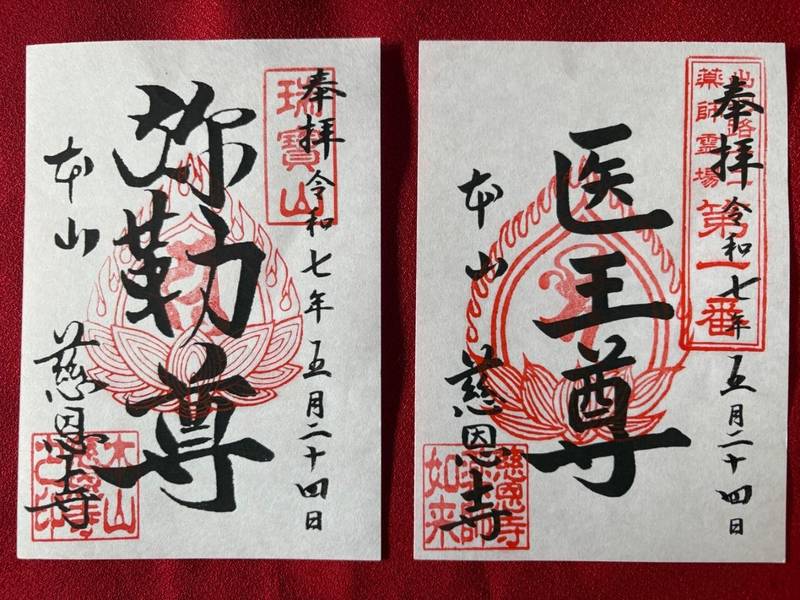 奉拝 令和七年五月二十四日
瑞寶山
弥勒尊
本山 慈恩寺
本山
慈恩寺
奉拝 令和七年五月二十四日
薬師霊場
第一番
医王尊
本山 慈恩寺
慈恩寺
薬師
如来